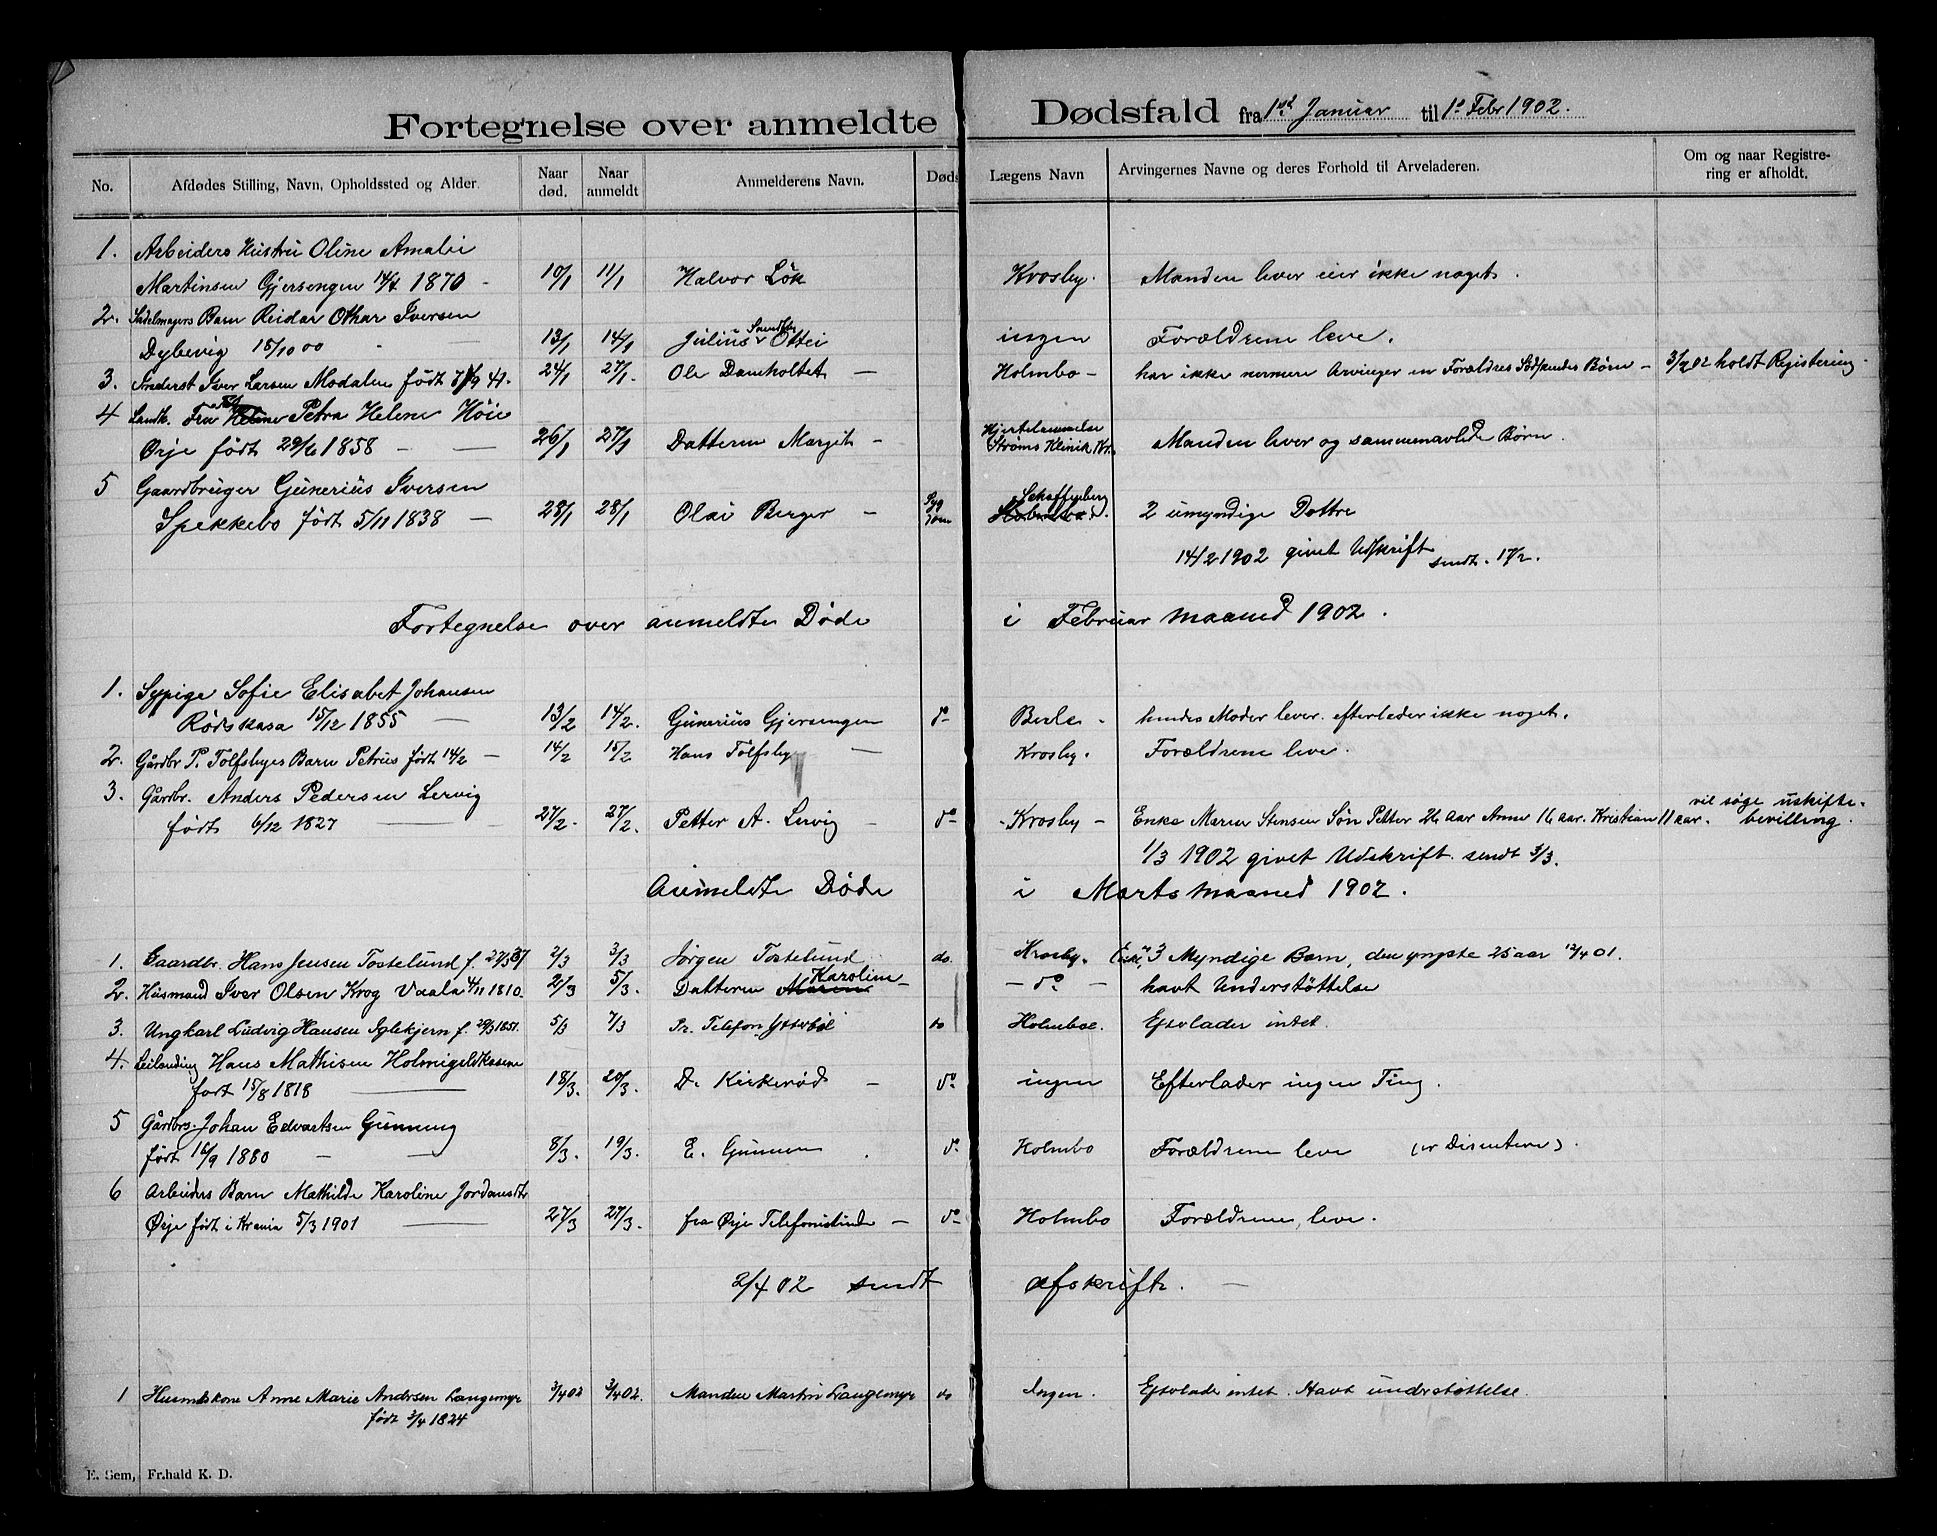 Fortegnelse over anmeldte Dødsfald fra 1ste Januar til 1e Febr 1902.
No. Afdødes Stilling, Navn, Opholdssted og Alder. Naar død. Naar anmeldt Anmelderens Navn. Døds Lægens Navn Arvingernes Navne og deres Forhold til Arveladeren. Om og naar Registrering er afholdt.
1. Arbeiders Hustru Oline Amalie
Martinsen Gjersengen 14/4 1870 - 10/1 11/1 Halvor Lök Krosby. Manden lever eier ikke noget.
2. Sadelmagers Barn Reidar Othar Iversen
Dybevig 18/10 00 - 13/1 14/1 Julius Ottei ingen Forældrene leve.
3. Iver Larsen Modalen født 9 41. 24/1 27/1. Ole Damholtet - Holmbo - har ikke nermere Arvinger en Forældres Sødskendes Børn - 3/2 02 holdt Registering.
4 Landh. Fru Petra Helene Höie
Ørje født 29/6 1858 - 26/1 27/1 Datteren Margit - Hjertelammelse Strøms Klinik Kr. Manden lever og sammenavlede Børn.
5 Gaardbruger Gunerius Iversen
Spekkebo født 5/11 1838 - 28/1 28/1 Olai Berger - Schaffenberg 2 umyndige Døttre
14/2 1902 givet Udskrift sendt. 17/2.
Fortegnelse over anmeldte Døde i Februar maaned 1902.
1. Sypige Sofie Elisabet Johansen
Rødskasa 15/12 1855 - 13/2 14/2. Gunerius Gjersengen do Berle - hendes Moder lever. efterlader ikke noget.
2. Gårdbr P. Tolfsbyes Barn Petrus født 14/2 - 14/2 15/2 Hans Tolfsby - Krosby. Forældrene leve.
3. Gårdbr. Anders Pedersen Lervig
født 6/12 1827 - 27/2. 27/2. Petter A. Lervig - do - Krosby - Enke Maren Stensen Søn Petter 26 aar Anne 16 aar. Kristian 11 aar. vil søge uskifte-
bevilling.
1/3 1902 givet Udskrift. sendt 3/3.
Anmeldte Døde i Marts maaned 1902.
1. Gaardbr. Hans Jensen Tostelund f. 27/3 37 2/3 3/3 Jørgen Tostelund do. Krosby. Enke, 3 Myndige Barn, den yngste 25 aar 12/4 01.
2. Husmand Iver Olsen Krog Vaala 4/11 1810. 2/3 5/3. Datteren Karoline - - do - havt Understøttelse
3. Ungkarl Ludvig Hansen Iglekjern f. 29/3 1851. 5/3 7/3 Pr. Telefon Ytterböl do Holmboe. Eftvlader intet.
4. Leilending Hans Mathisen Holmigeldkasene
født 15/8 1818 - 18/3. 20/3. D. Kirkerød - do. ingen Efterlader ingen Ting.
5 Gårdbrs. Johan Edvartsen Gunneng
født 16/9 1880 - 8/3. 19/3. E. Gunnen do. Holmbo Forældrene leve (er Disentere).
6 Arbeiders Barn Mathilde Karoline Jordansdtr
Ørje født i Krania 5/3 1901 - 27/3 27/3. fra Ørje Telefonistinde - do Holmbo Forældrene, leve.
2/4 02 sendt afskrift. -
1 Husmdskone Anne Marie Andersen Langemyr 3/4 02 3/4 02. Manden Martin Langemyr do Ingen. Eftvlader intet. Havt understøttelse.
født 3/4 1824
E. Sem, Fr.hald K. D.